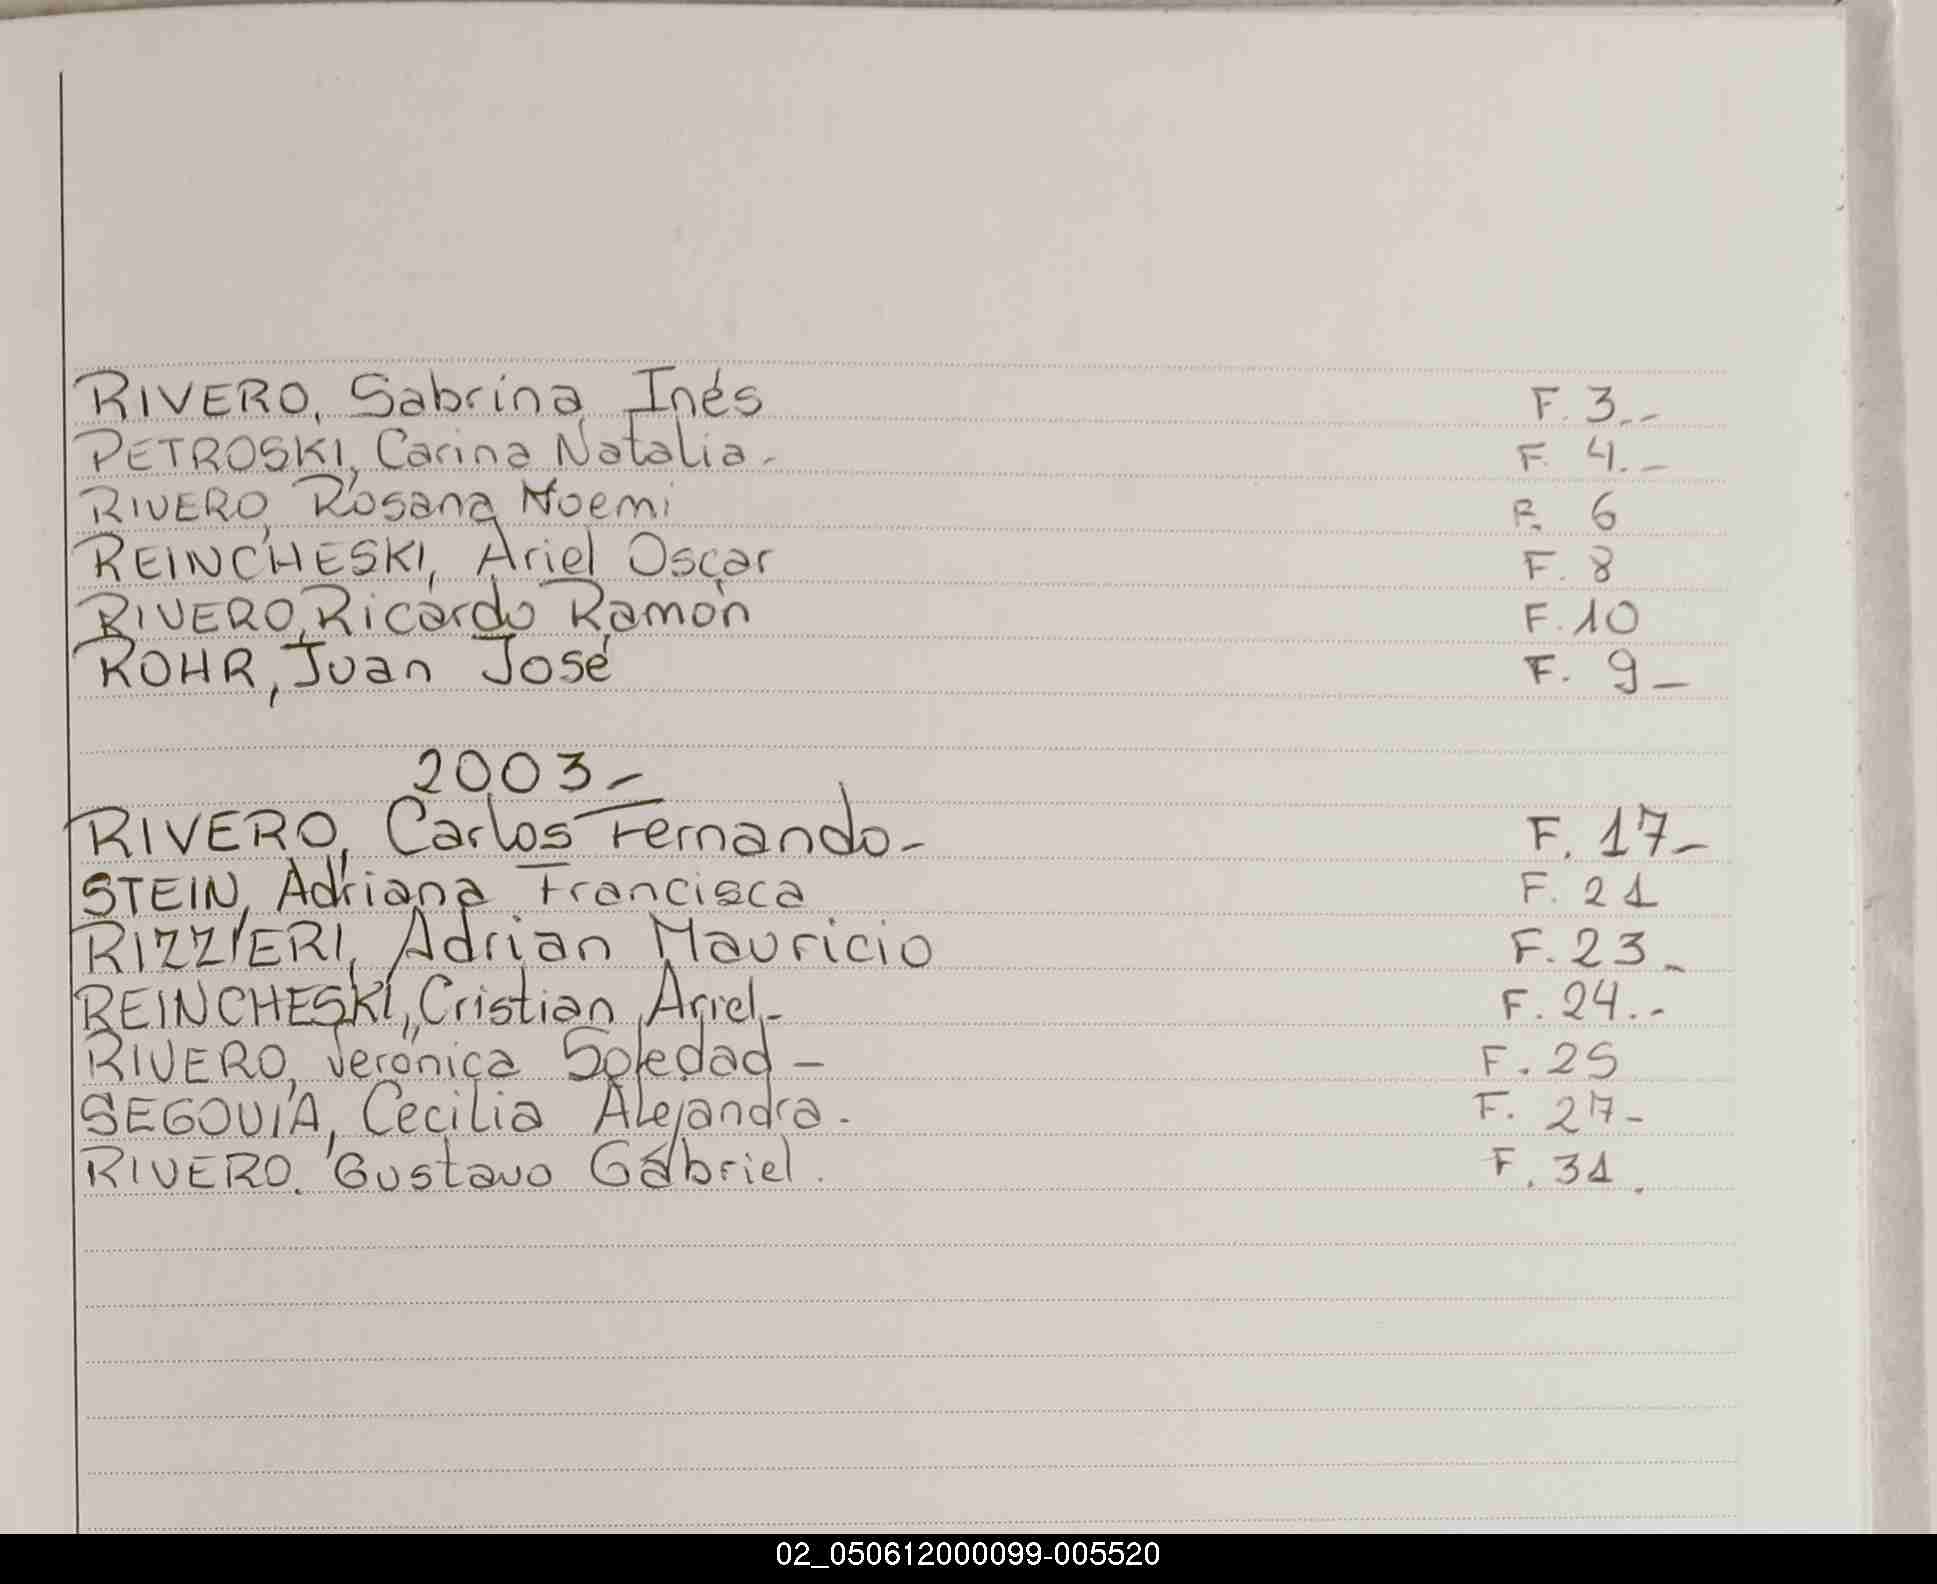 RIVERO, Sabrina Inés F. 3.-
PETROSKI, Carina Natalia.- F. 4.-
RIVERO, Rosana Noemi F. 6
REINCHESKI, Ariel Oscar F. 8
RIVERO, Ricardo Ramón F. 10
ROHR, Juan José F. 9-
2003-
RIVERO, Carlos Fernando- F. 17-
STEIN, Adriana Francisca F. 21
RIZZIERI, Adrian Mauricio F. 23-
REINCHESKI, Cristian Ariel- F. 24.-
RIVERO, Verónica Soledad - F. 25
SEGOVIA, Cecilia Alejandra. F. 27-
RIVERO. Gustavo Gabriel. F. 31.
02_050612000099-005520